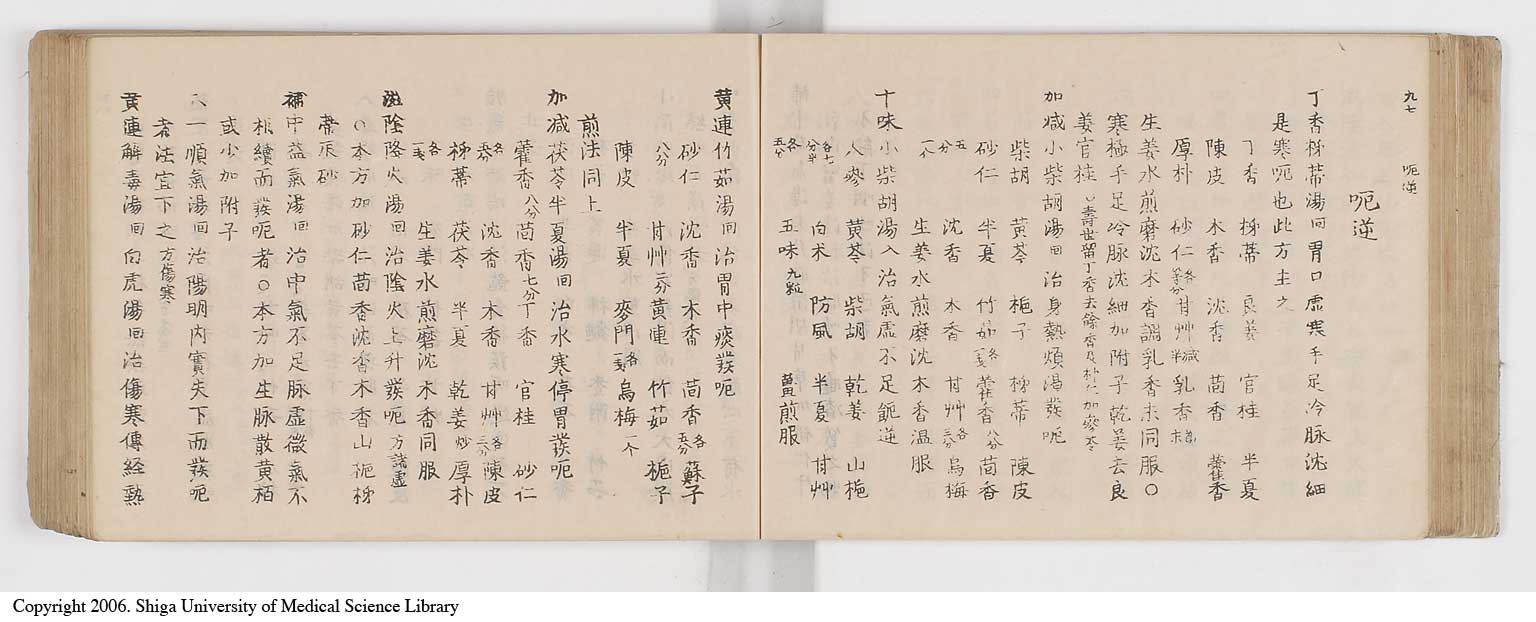 九七 呃逆
呃逆
丁香柿蔕湯 回 胃口虚寒手足冷脉沈細
是寒呃也此方主之
丁香 柿蔕 良姜 官桂 半夏
陳皮 木香 沈香 茴香 藿香
厚朴 砂仁 各等分 甘艸 减半 乳香 末
生姜水煎磨沈木香調乳香末同服〇
寒極手足冷脉沈細加附子乾姜去良
姜官桂
加减小柴胡湯 回 治身熱煩渴發呃
柴胡 黄芩 梔子 柿蔕 陳皮
砂仁 半夏 竹茹 各 藿香 八分 茴香
五分 沈香 木香 甘艸 各三分 烏梅
一个 生姜水煎磨沈木香温服
十味小柴胡湯 入 治氣虚不足呃逆
人參 黄芩 柴胡 乾姜 山梔
各七分半 白朮 防風 半夏 甘艸
各五分 五味 九粒 薑煎服
黄連竹茹湯 回 治胃中痰發呃
砂仁 沈香 木香 茴香 各五分 蘇子
八分 甘艸 三分 黄連 竹茹 梔子
陳皮 半夏 麥門 各 烏梅 一个
煎法同上
加减茯苓半夏湯 回 治水寒停胃發呃
藿香 八分 茴香 七分 丁香 官桂 砂仁
各五分 沈香 木香 甘艸 各三分 陳皮
柿蔕 茯苓 半夏 乾姜 炒 厚朴
各 生姜水煎磨沈木香同服
滋陰降火湯 回 治陰火上升發呃 方諸虚
〇本方加砂仁茴香沈香木香山梔柿
蔕辰砂
補中益氣湯 回 治中氣不足脉虚微氣不
相續而發呃者〇本方加生脉散黄栢
或少加附子
八一順氣湯 回 治陽明内實失下而發呃
者法宜下之 方傷寒
黄連解毒湯 回 白虎湯 回 治傷寒傳経熱